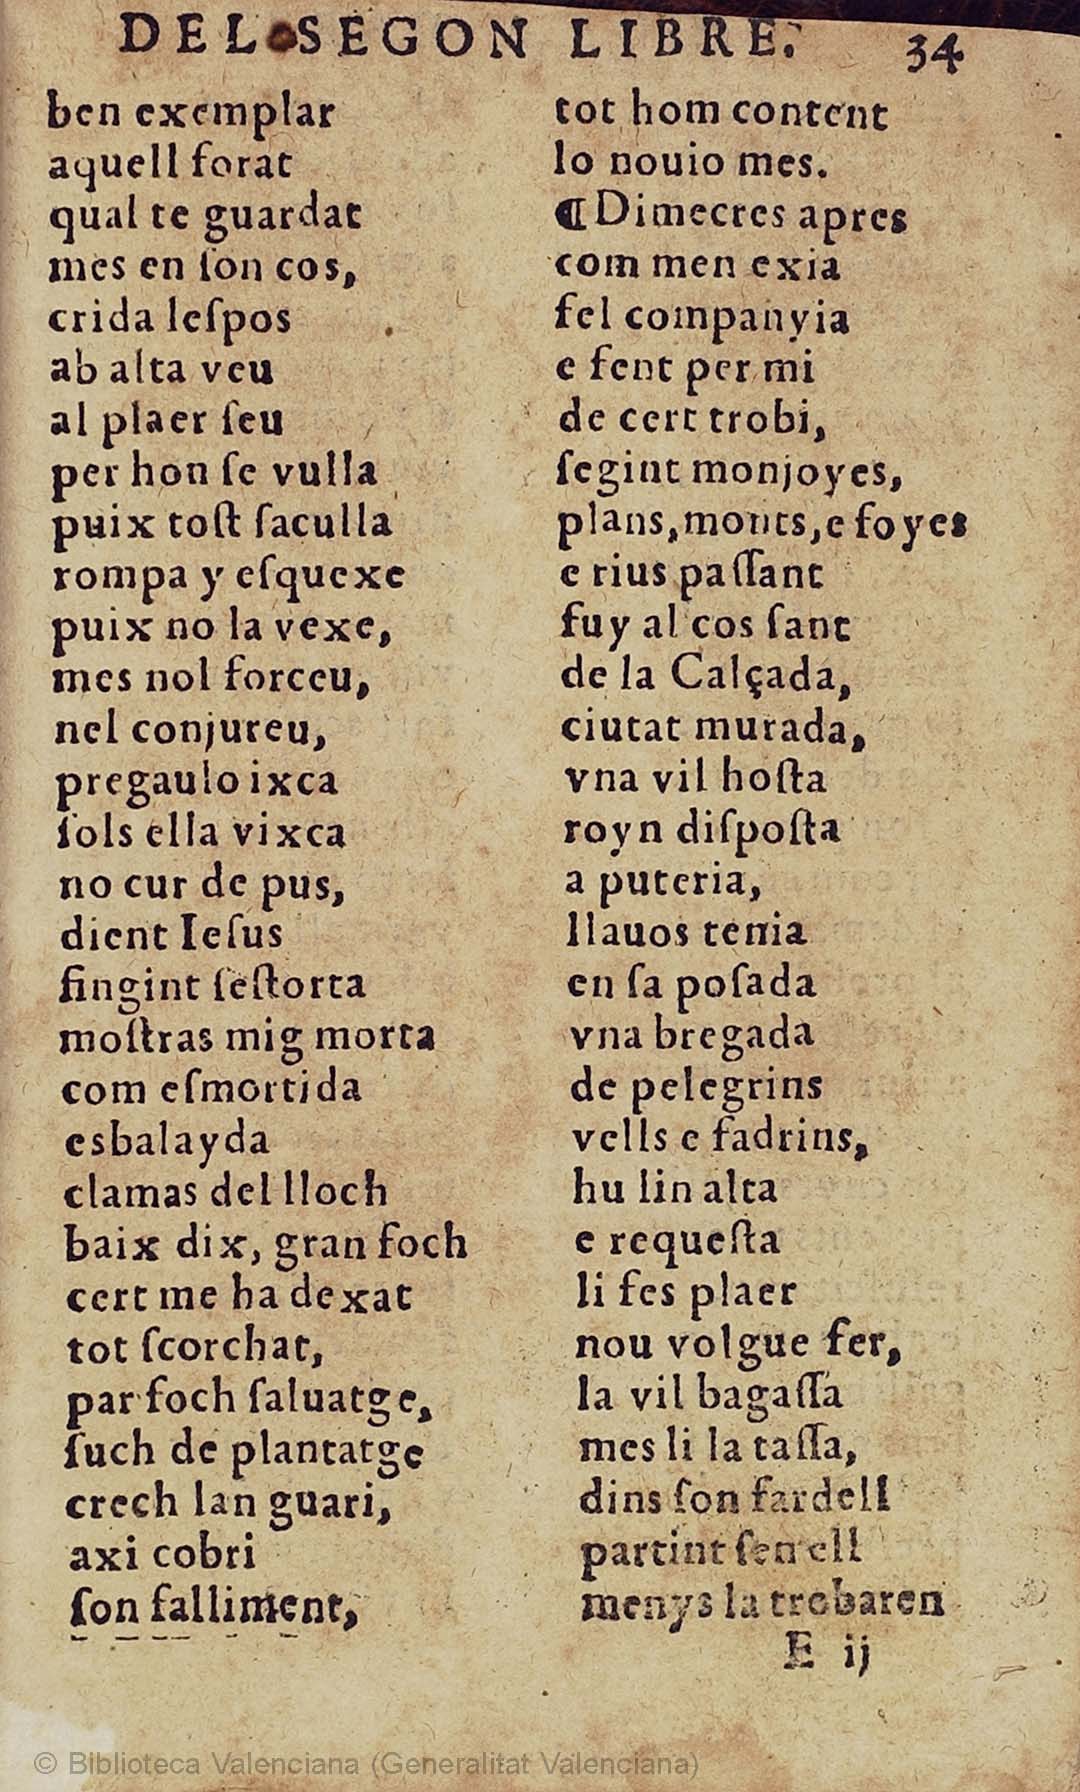 DEL SEGON LIBRE. 34
ben exemplar
aquell forat
qual te guardat
mes en ſon cos,
crida leſpos
ab alta veu
al plaer ſeu
per hon ſe vulla
puix toſt ſaculla
rompa y eſquexe
puix no la vexe,
mes nol forceu,
nel conjureu,
pregaulo ixca
ſols ella vixca
no cur de pus,
dient Ieſus
fingint ſeſtorta
moſtras mig morta
com eſmortida
esbalayda
clamas del lloch
baix dix, gran foch
cert me ha dexat
tot ſcorchat,
par foch ſaluatge,
ſuch de plantatge
crech lan guari,
axi cobri
ſon falliment,
tot hom content
lo nouio mes.
¶Dimecres apres
com men exia
fel companyia
e fent per mi
de cert trobi,
ſegint monjoyes,
plans, monts, e foyes
e rius paſſant
fuy al cos ſant
de la Calçada,
ciutat murada,
vna vil hoſta
royn diſpoſta
a puteria,
llauos tenia
en ſa poſada
vna bregada
de pelegrins
vells e fadrins,
hu lin alta
e requeſta
li fes plaer
nou volgue fer,
la vil bagaſſa
mes li la taſſa,
dins ſon fardell
partint ſen ell
menys la trobaren
E ij
© Biblioteca Valenciana (Generalitat Valenciana)